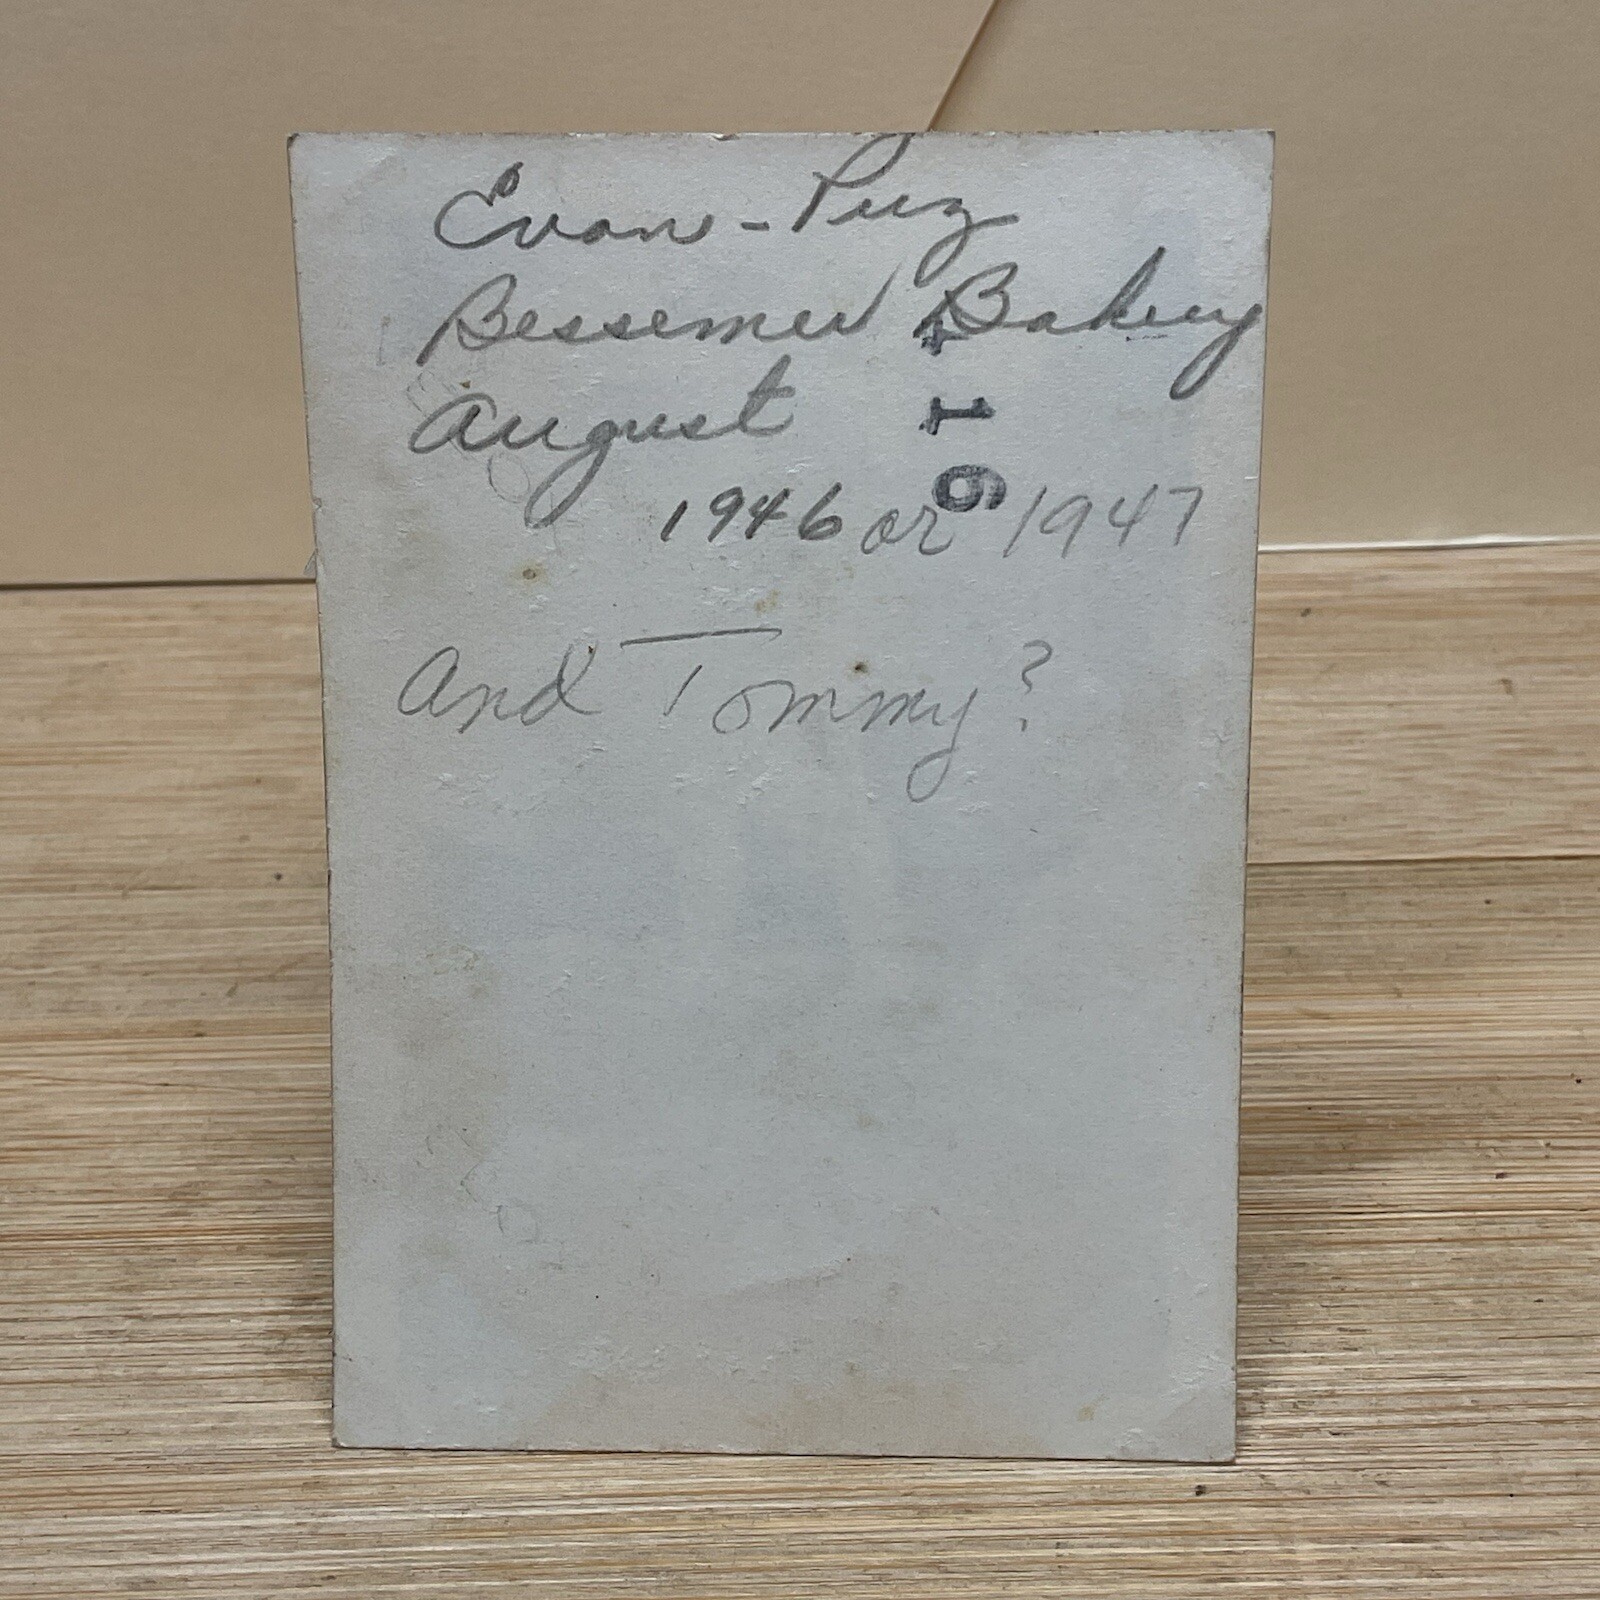 Evan - Puz
Bessemer Bakery
August
1946 or 1947
And Tommy?
416